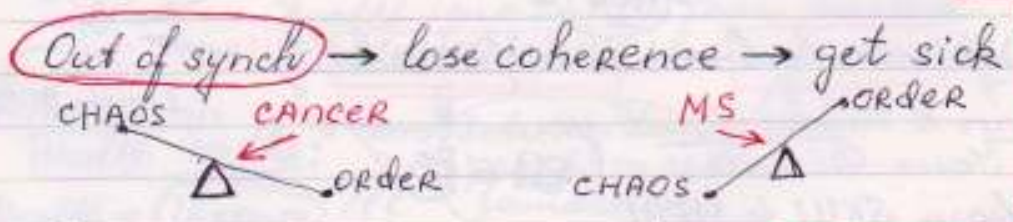 Out of synch → lose coherence → get sick
CHAOS CANCER MS ORDER
ORDER CHAOS